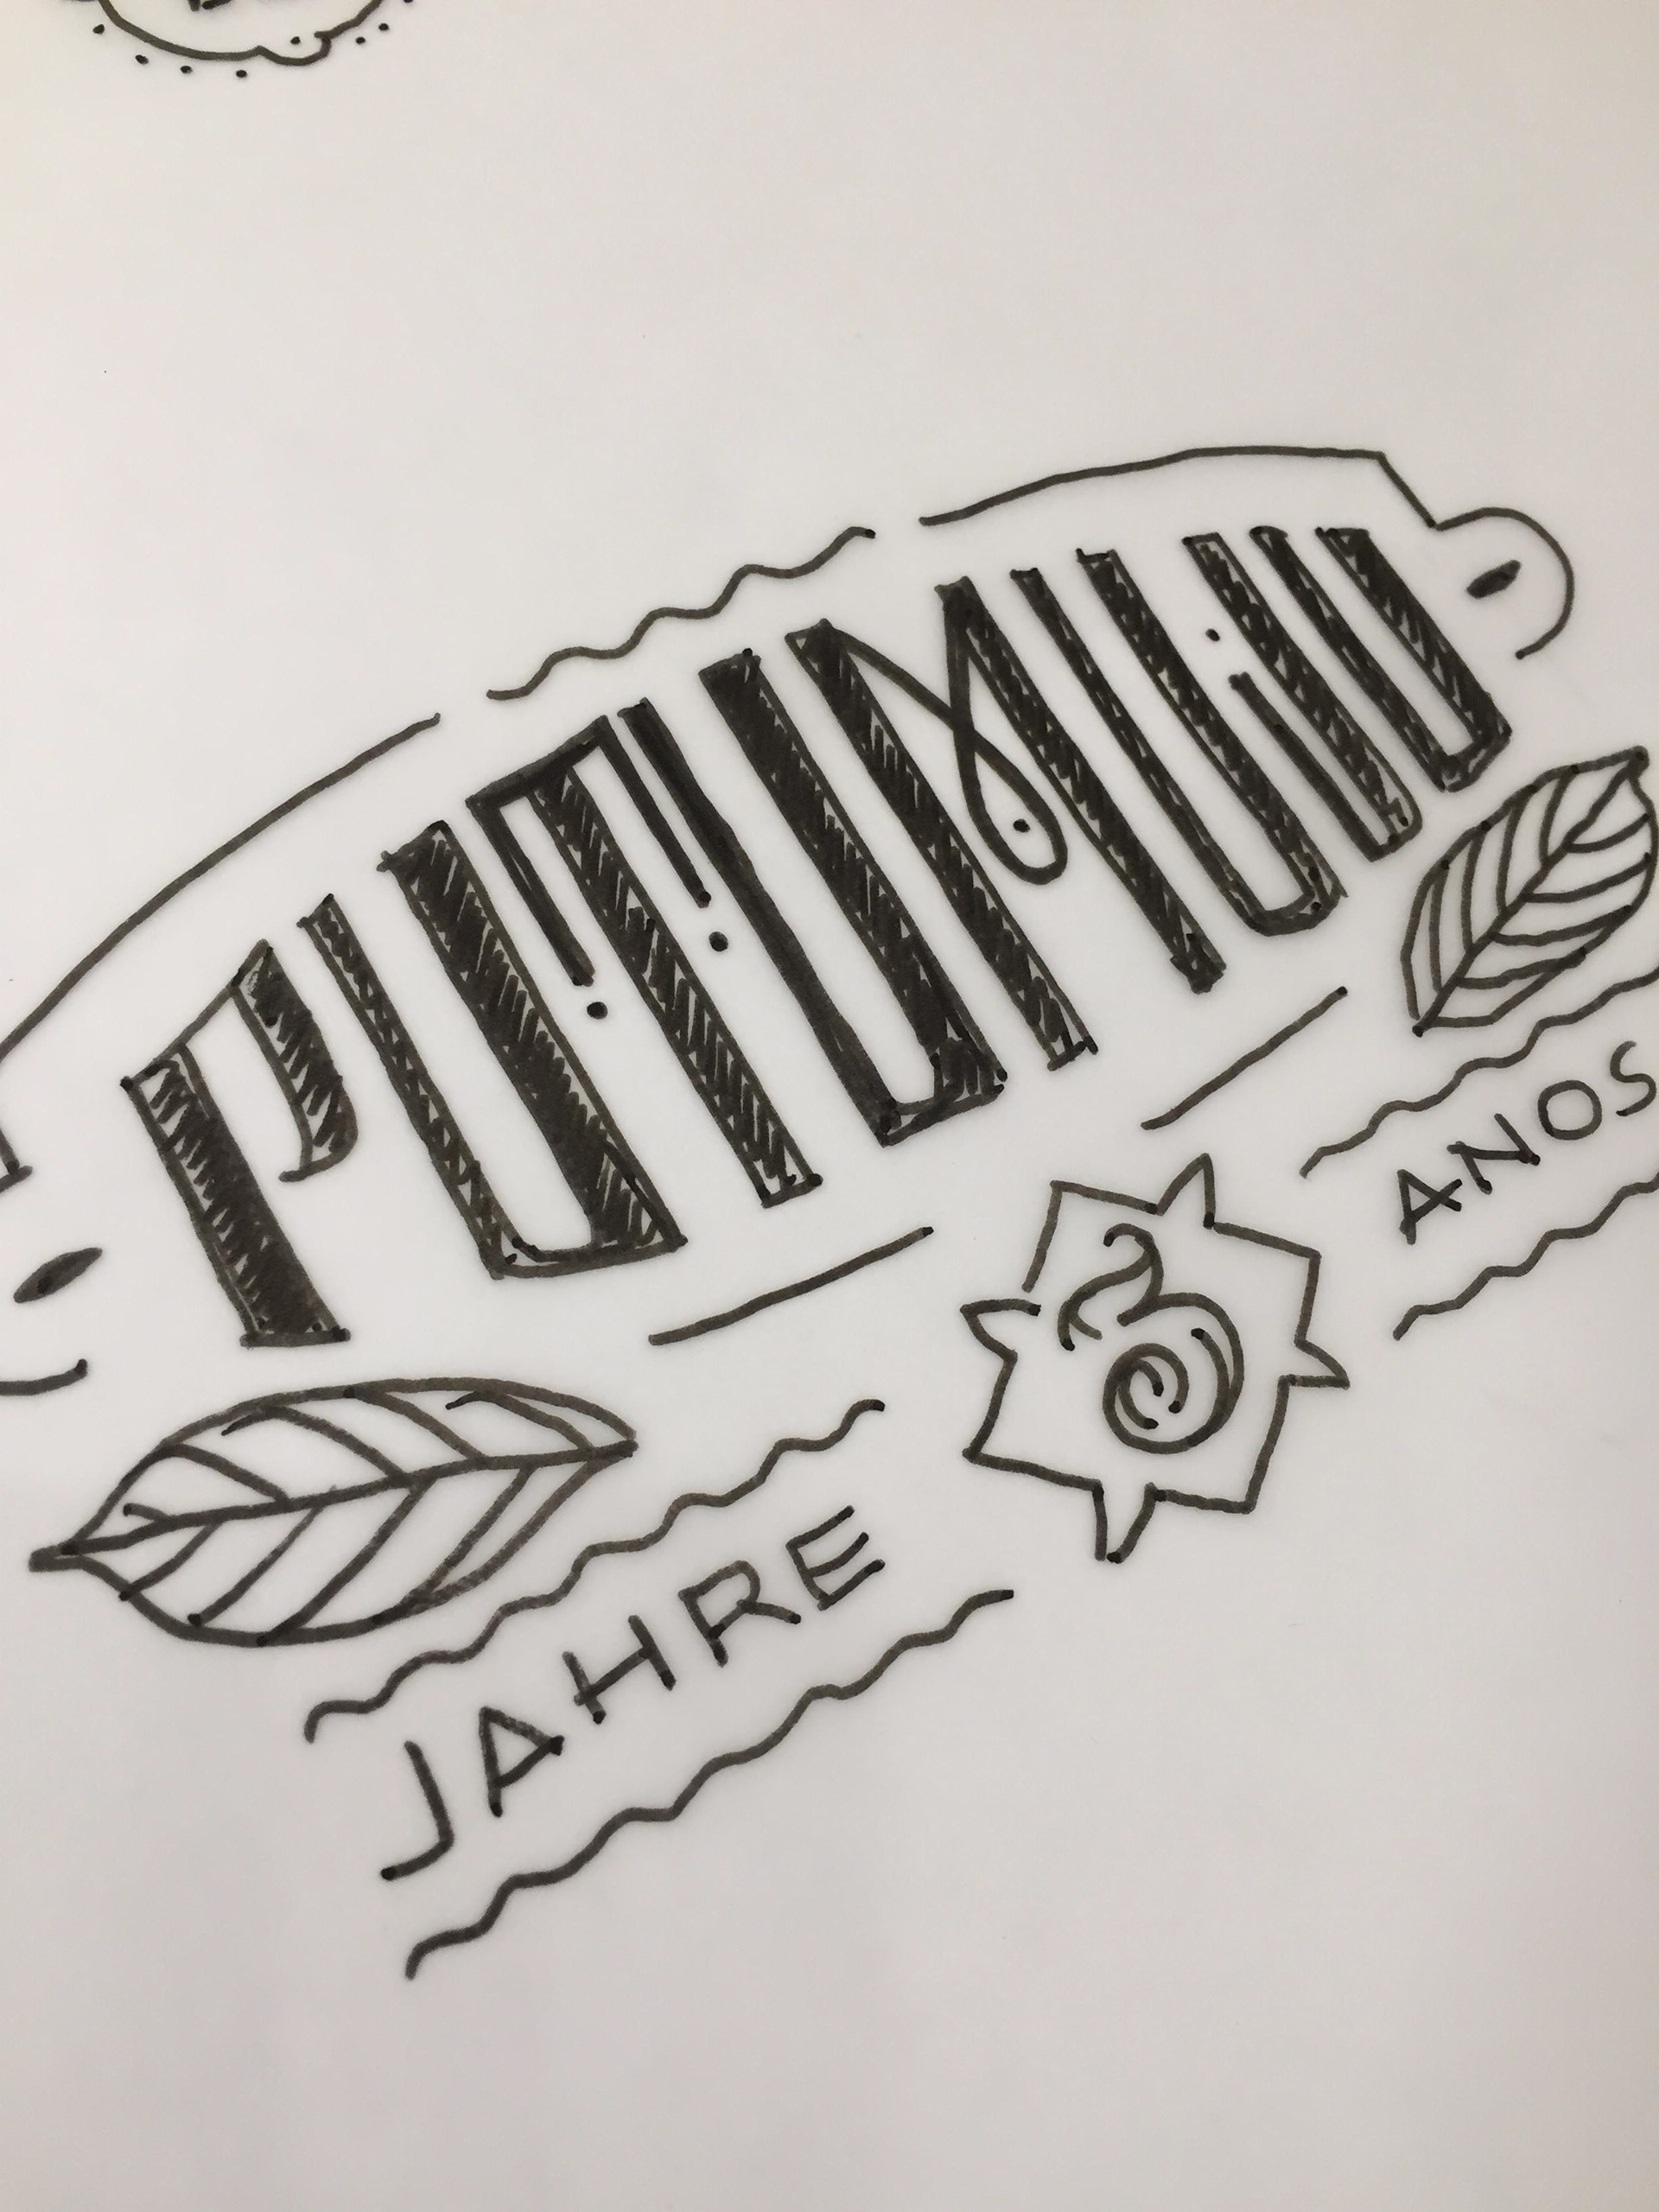 PUTUMUJU
JAHRE ANOS